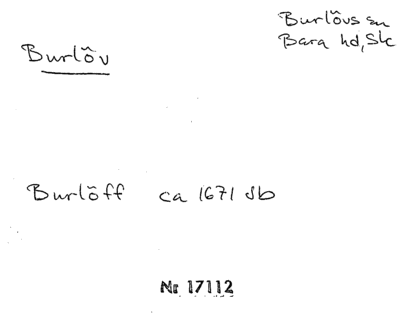 Burlövs sn
Bara hd, Skc
Burlöv
Burlöff ca 1671 Jb
Nr 17112